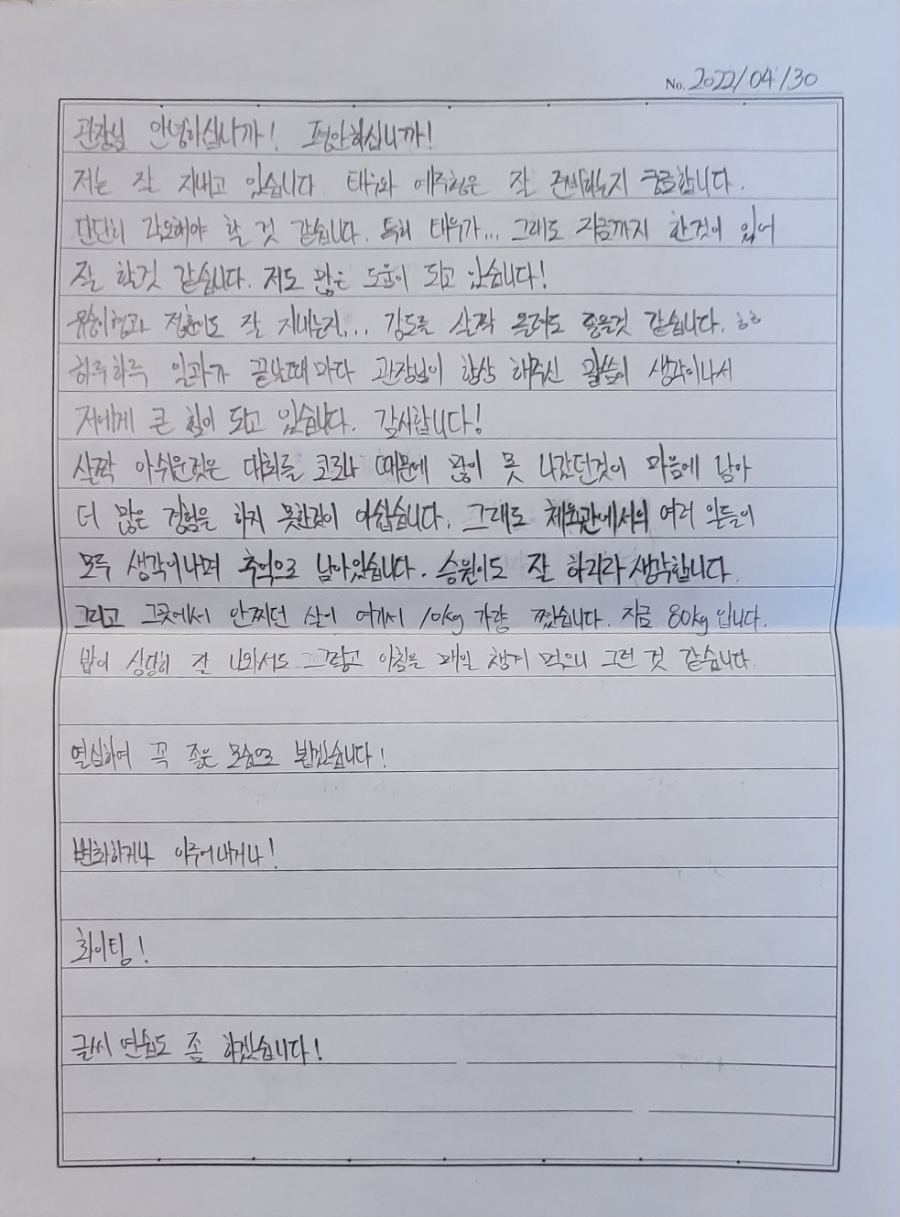 No. 2022/04/30
관장님 안녕하십니까! 평안하십니까!
저는 잘 지내고 있습니다. 태우와 예주형은 잘 준비하는지 궁금합니다.
단단히 각오해야 할 것 같습니다. 특히 태우가... 그래도 지금까지 한것이 있어
잘 할것 같습니다. 저도 많은 도움이 되고 있습니다!
잘 지내는지... 강도를 살짝 올려도 좋을것 같습니다. ㅎㅎ
하루하루 일과가 끝날때마다 관장님이 항상 해주신 말씀이 생각이나서
저에게 큰 힘이 되고 있습니다. 감사합니다!
살짝 아쉬운것은 대회를 코로나 때문에 많이 못 나갔던것이 마음에 남아
더 많은 경험을 하지 못한것이 아쉽습니다. 그래도 체육관에서의 여러 일들이
모두 생각이나며 추억으로 남아있습니다. 승원이도 잘 하리라 생각합니다.
그리고 그곳에서 안찌던 살이 여기서 10kg 가량 쪘습니다. 지금 80kg 입니다.
밥이 상당히 잘 나와서도 그렇고 아침을 매일 챙겨 먹으니 그런 것 같습니다.
열심하여 꼭 좋은 모습으로 뵙겠습니다!
변화하거나 이루어내거나!
화이팅!
글씨 연습도 좀 하겠습니다!